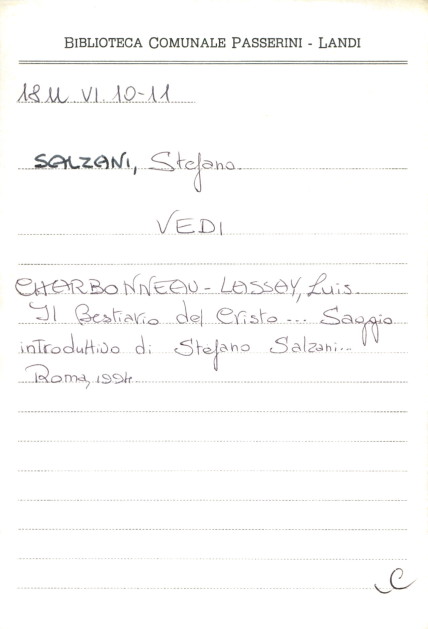 BIBLIOTECA COMUNALE PASSERINI - LANDI
18 M VI. 10-11
SALZANI, Stefano.
VEDI
CHARBONNEAU - LASSAY, Luis.
Il Bestiario del Cristo ... Saggio
introduttivo di Stefano Salzani...
Roma, 1994.
C